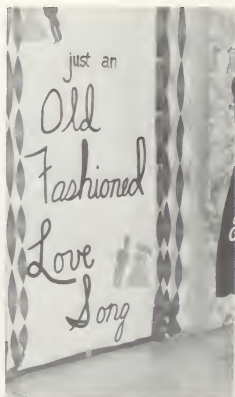 just an
Old
Fashioned
Love
Song